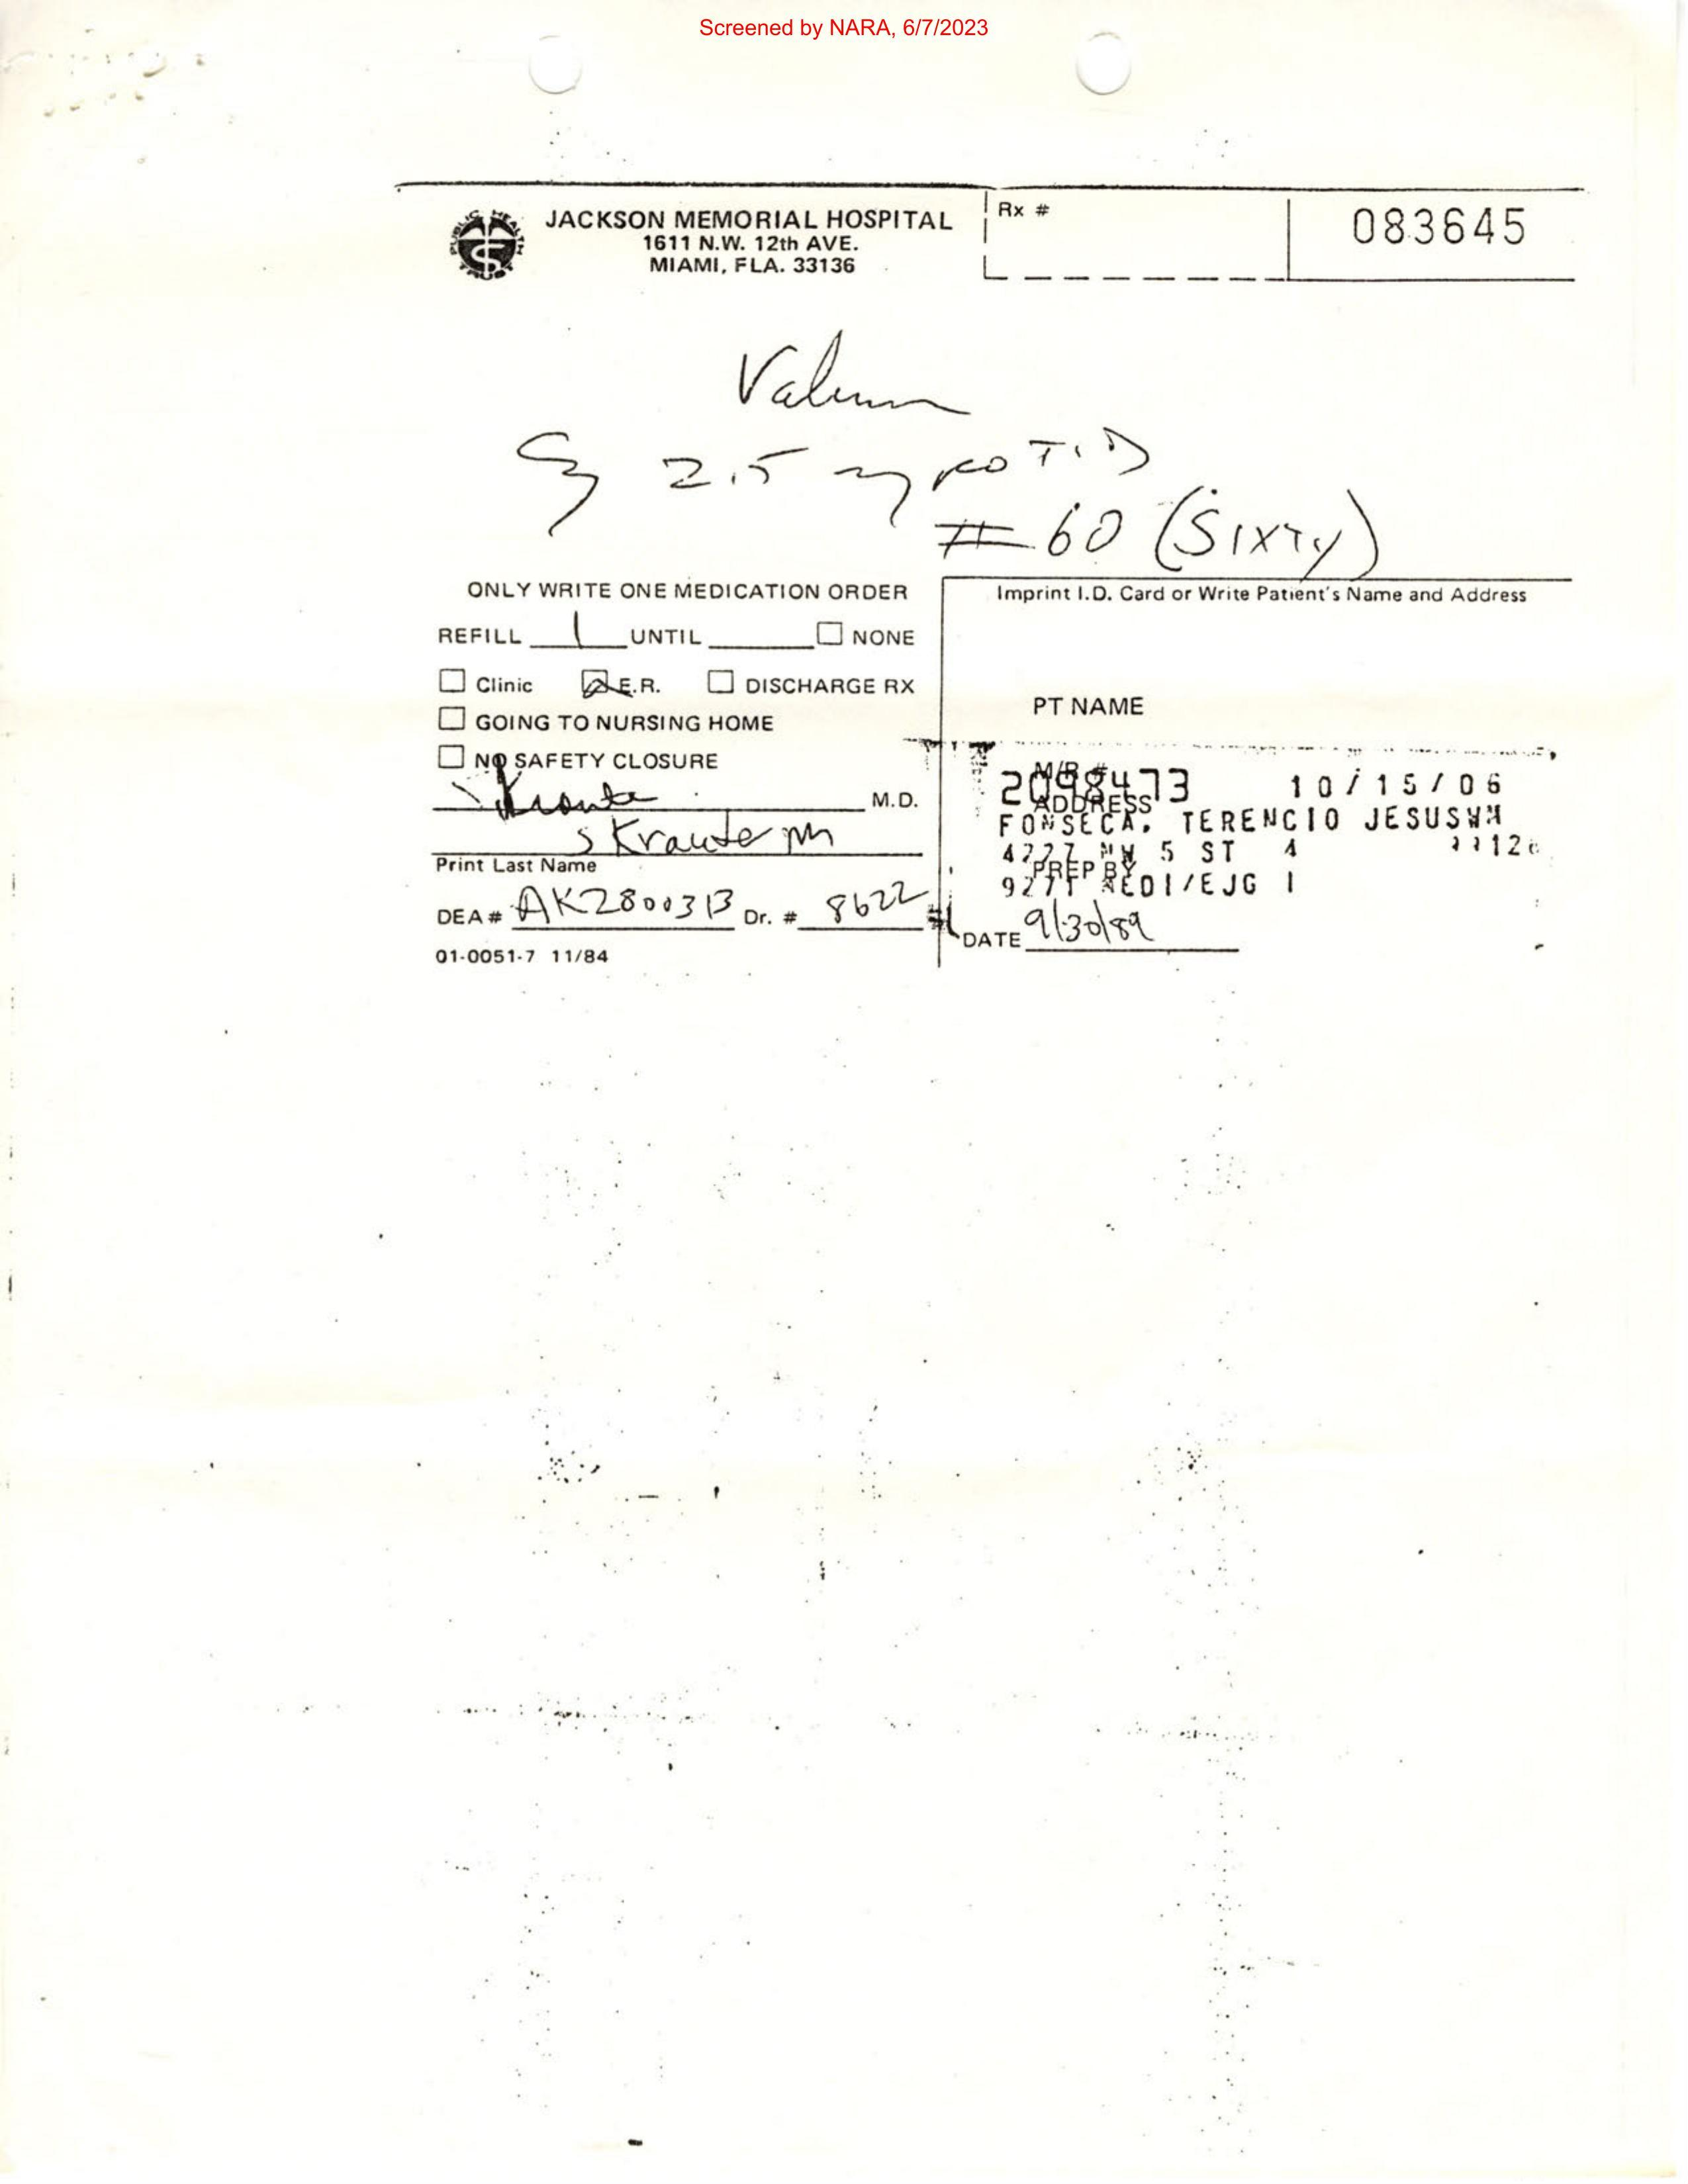 Screened by NARA, 6/7/2023
PUBLIC HEALTH TRUST
JACKSON MEMORIAL HOSPITAL
1611 N.W. 12th AVE.
MIAMI, FLA. 33136
Rx #
083645
Valium
2.5 mg po T.I.D
# 60 (SIXTY)
ONLY WRITE ONE MEDICATION ORDER
REFILL 1 UNTIL NONE
Clinic E.R. DISCHARGE RX
GOING TO NURSING HOME
NO SAFETY CLOSURE
M.D.
S Krauter
Print Last Name
DEA # AK2800313 Dr. # 8622
01-0051-7 11/84
Imprint I.D. Card or Write Patient's Name and Address
PT NAME
M/R #
2098473 10/15/06
ADDRESS
FONSECA, TERENCIO JESUS
NW 5 ST 4
PREP BY
9271 /EJG 1
DATE 9/30/89